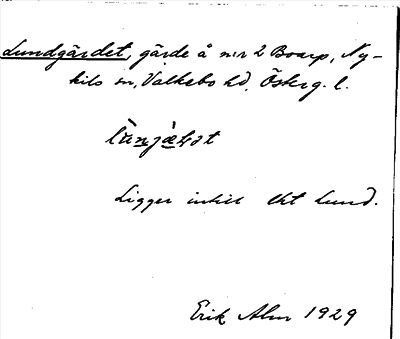 Lundgärdet, gärde å nr 2 Boarp, Ny-
kils sn, Valkebo hd, Österg. l.
Ligger intill Ekt Lund.
Erik Alm 1929